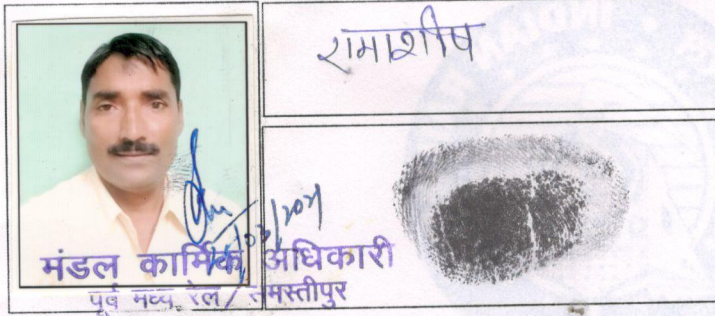 रामाशीष
03/2021
मंडल कार्मिक अधिकारी
पूर्व मध्य रेल/समस्तीपुर
INDIAN